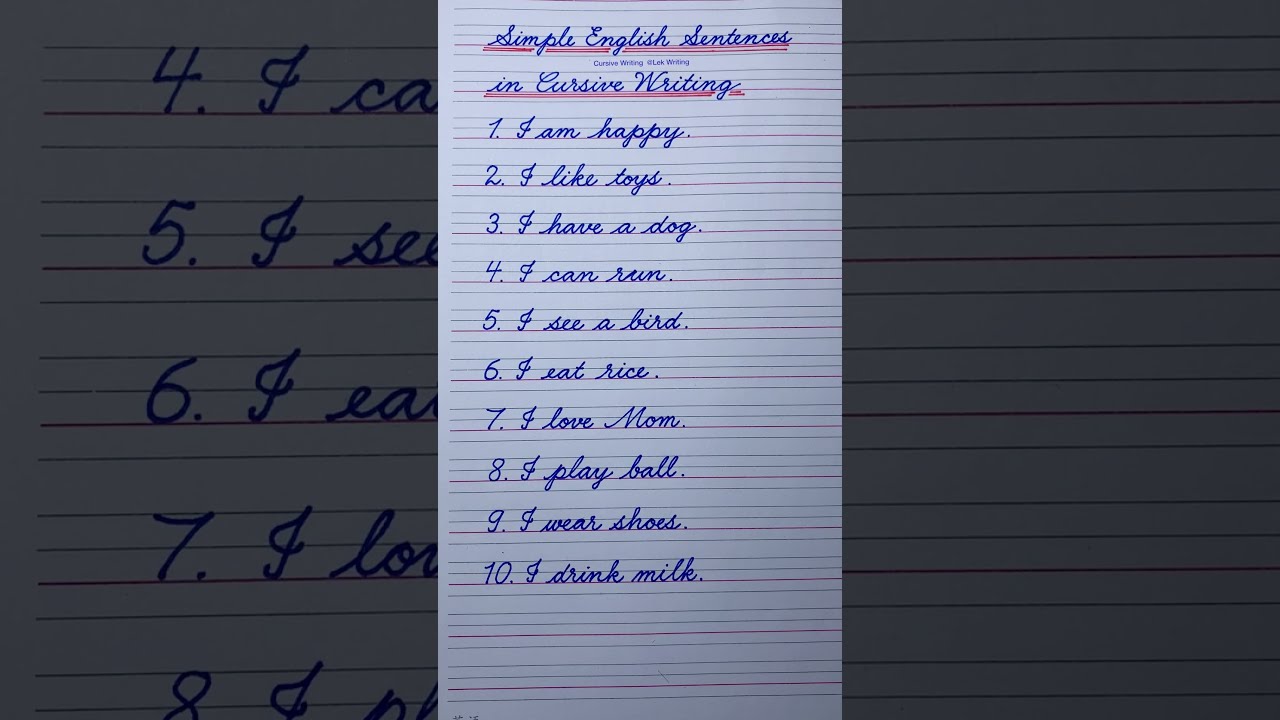 Simple English Sentences
Cursive Writing @Lek Writing
in Cursive Writing
1. I am happy.
2. I like toys.
3. I have a dog.
4. I can run.
5. I see a bird.
6. I eat rice.
7. I love Mom.
8. I play ball.
9. I wear shoes.
10. I drink milk.
4. I ca
5. I see
6. I ea
7. I lov
8. I pl